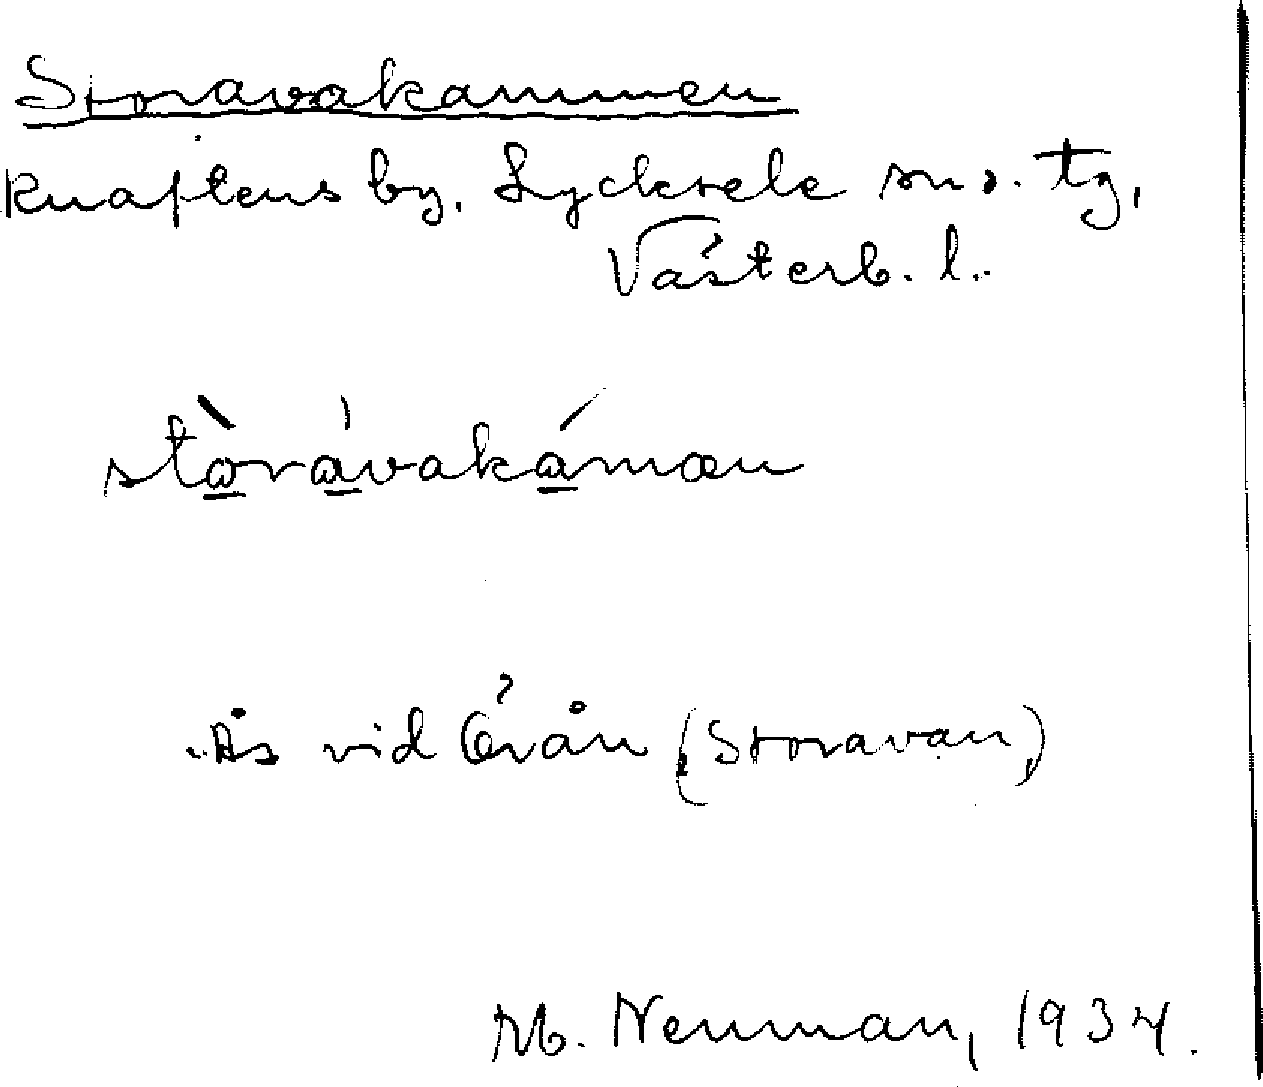 Storavakammen
Knaftens by. Lycksele sn o. tg,
Västerb. l.
stòrávakámen
Ås vid Örån (Storavan)
M. Neuman, 1934.